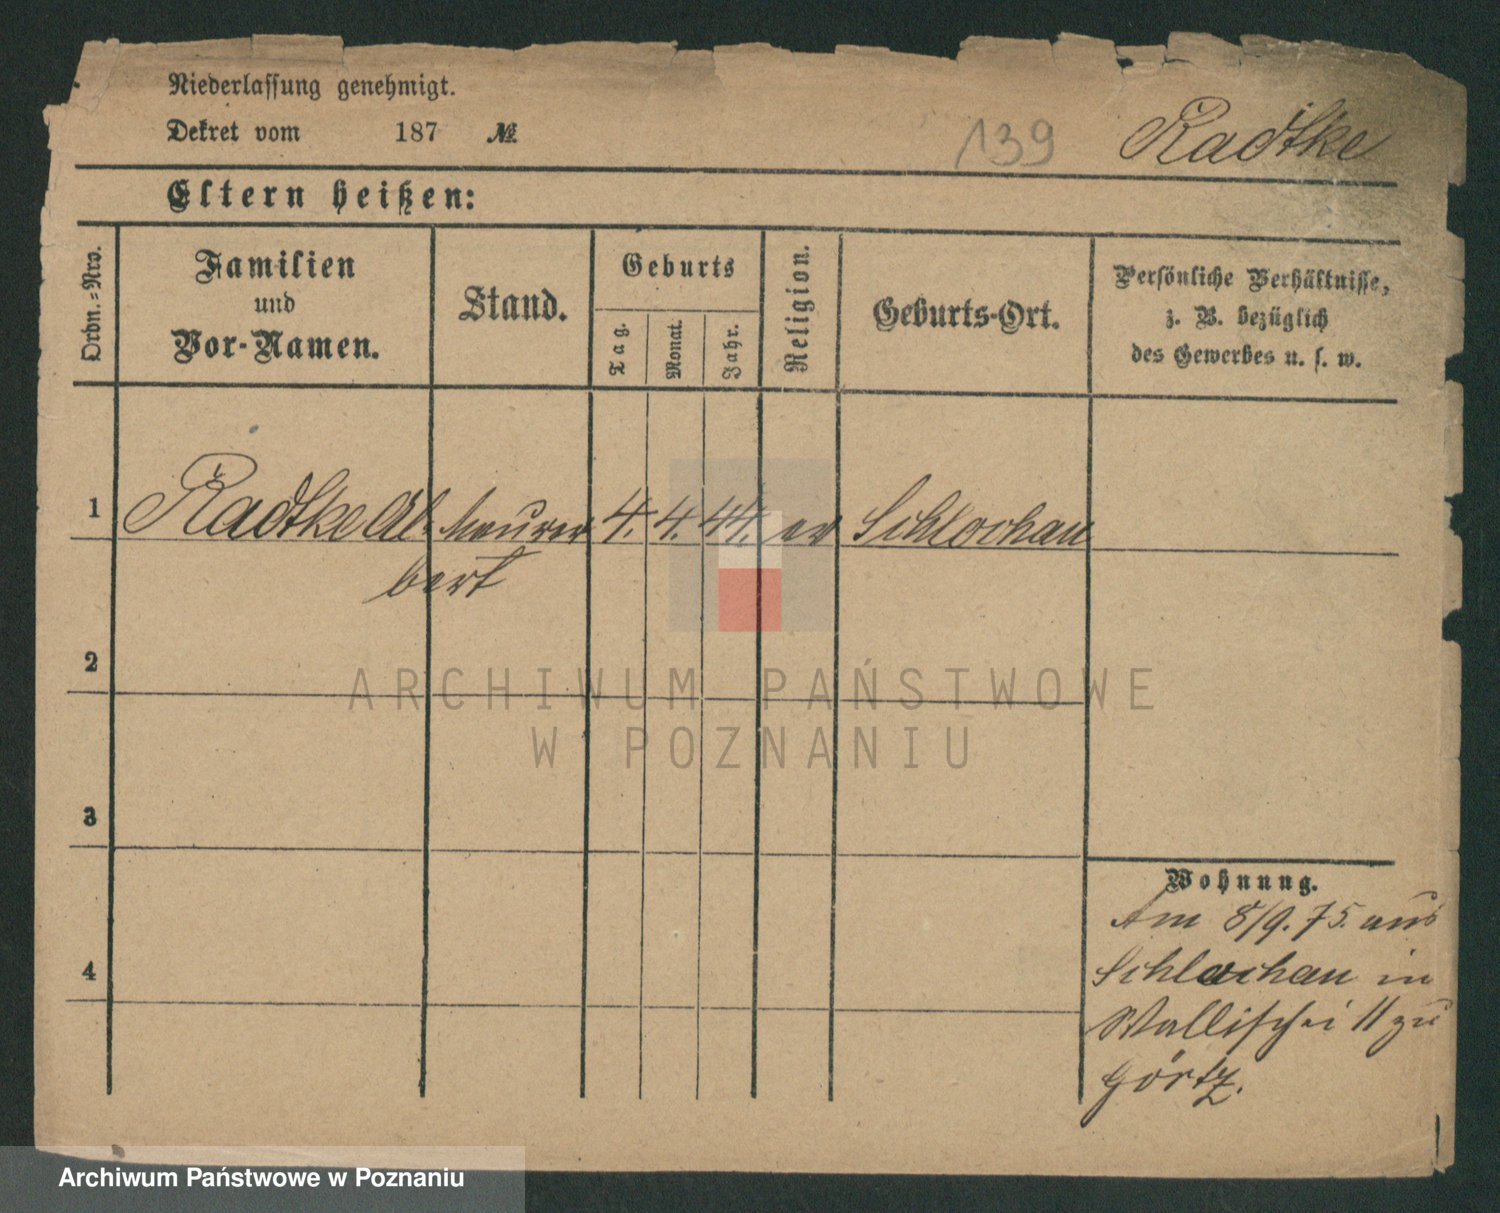 Niederlassung genehmigt.
Dekret vom 187 №
139
Radtke
Eltern heißen:
Ordn.-Nro.
Familien
und
Vor-Namen.
Stand.
Geburts
Tag.
Monat.
Jahr.
Religion.
Geburts-Ort.
Persönliche Verhältnisse,
z. B. bezüglich
des Gewerbes u. s. w.
1 Radtke Al- Maurer 4. 4. 44. ev Schlochau
bert
2
3
4
Wohnung.
Am 8/9. 75. aus
Schlochau in
Wallischei 11 zu
Görtz.
ARCHIWUM PAŃSTWOWE
W POZNANIU
Archiwum Państwowe w Poznaniu